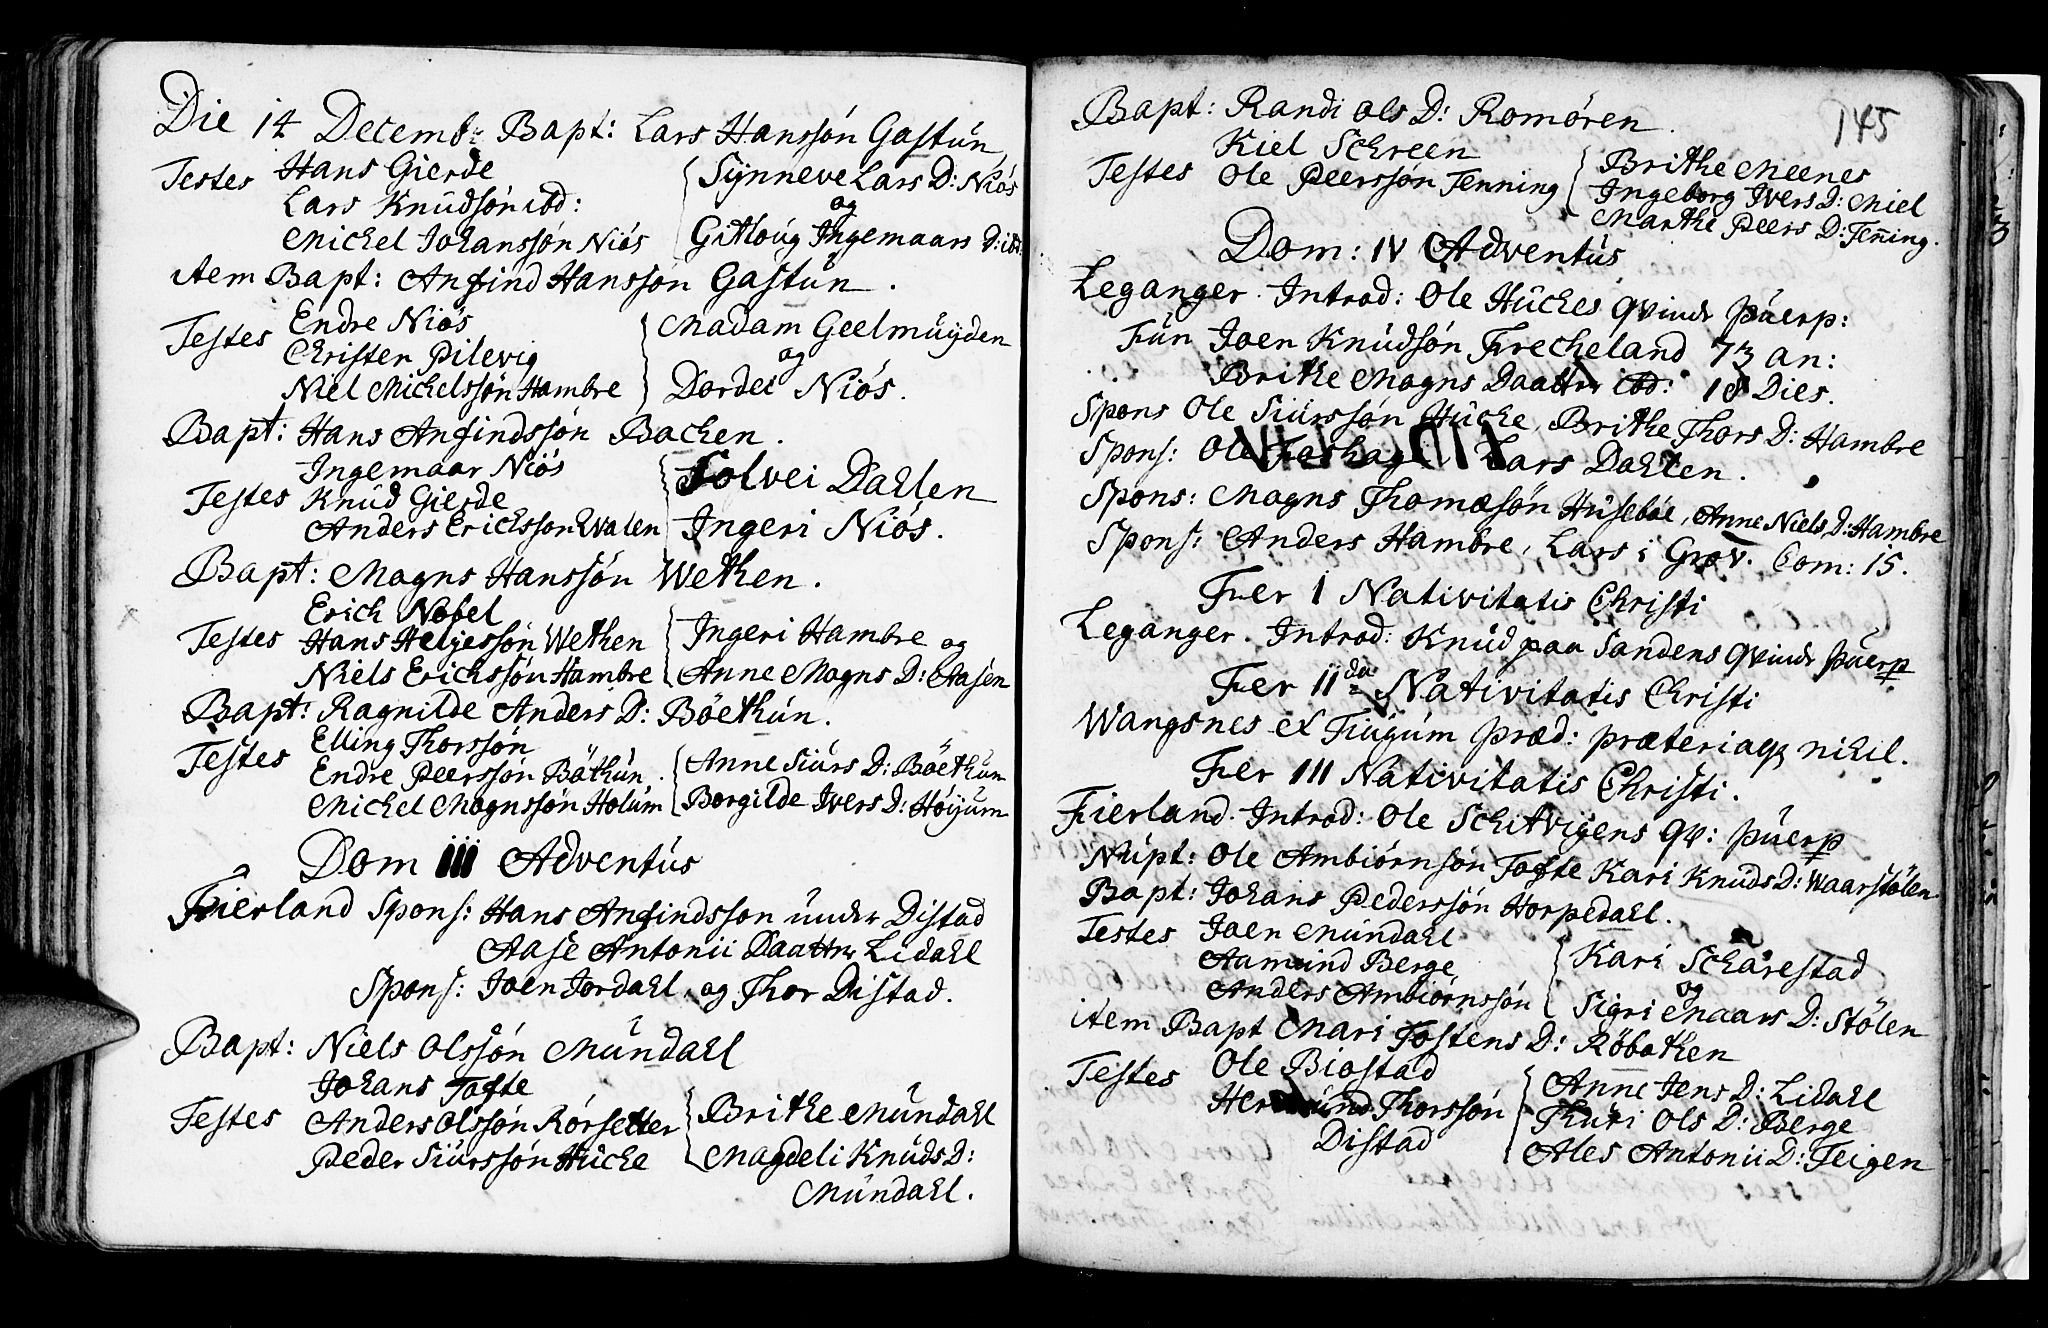 Die 14 Decemb: Bapt: Lars Hanssón Gastún
Testes Hans Gierde
Lars Knúdsón ibd:
Michel Johanssón Niós
Sÿnneve Lars D: Niós
og
Gitloúg Ingemaars D: ibd:
item Bapt: Anfind Hansson Gastún.
Testes Endre Niós
Christen Pilevig
Niel Michelssón Hambre
Madam Geelmúÿden
og
Dordei Niós.
Bapt: Hans Anfindssón Backen.
Testes Ingemaar Niós
Knúd Gierde
Anders Erickssón Walen
Solvei Dahlen
Ingeri Niós.
Bapt: Magns Hanssón Wethen.
Testes Erich Nobel
Hans Helgessón Wethen
Niels Erickssón Hambre
Ingeri Hambre og
Anne Magns D:
Bapt: Ragnilde Anders D: Böethún.
Testes Elling Thorssón
Endre Peerssón Böthún.
Michel Magnssón Holúm
Anne Siúrs D: Böethum
Borgilde Ivers D: Höÿúm
Dom III Adventús
Fierland Spons: Hans Anfindsson under Distad
Aase Antonii Daatter Lidahl
Spons: Joen Jordahl, og Thor Distad.
Bapt: Niels Olssón Múndahl
Testes Johans Tofte
Anders Olssón Rórsetter
Peder Siúrssón Húcke
Brithe Múndahl
Magdeli Knúds D:
Múndahl.
145
Bapt: Randi Ols D: Romören.
Testes Kiel Schreen
Ole Peerssón Fenning
Brithe Meenes
Ingeborg Ivers D: Miel
Marthe Peers D: Fenning.
Dom: IV Adventús
Leganger. Introd: Ole Húckes qvinde púerp:
Fún Joen Knúdsón Frecheland 73 an:
Brithe Magns Daatter ibd: 18 Dies.
Spons Ole Siúrssón Húcke, Brithe Thors D: Hambre
Spons: Ole Lars Dahlen.
Spons: Magns Thomæsön Húsebóe, Anne Niels D: Hambre
Spons: Anders Hambre, Lars i Grov. Com: 15.
Fer I Nativitatis Christi
Leganger. Introd: Knúd paa Sandens qvinde púerp
Fer II da Nativitatis Christi
Wangsnes et Fiúgúm præd: præteriaqz nihil.
Fer III Nativitatis Christi.
Fierland. Introd: Ole Schitvigens qv: púerp
Núpt: Ole Ambiórnsón Tofte Kari Knúds D: Waarstölen.
Bapt: Johans Pederssón Horpedahl.
Testes Joen Múndahl
Aamúnd Berge
Anders Ambiórnssón
Kari Schårestad
og
Sigri Maars D: Stölen
item Bapt Mari Tostens D: Röbothen
Testes Ole Biostad
Hermúnd Thorssón
Distad
Anne Jens D: Lidahl
Thúri Ols D: Berge
Ales Antonii D: Feigen